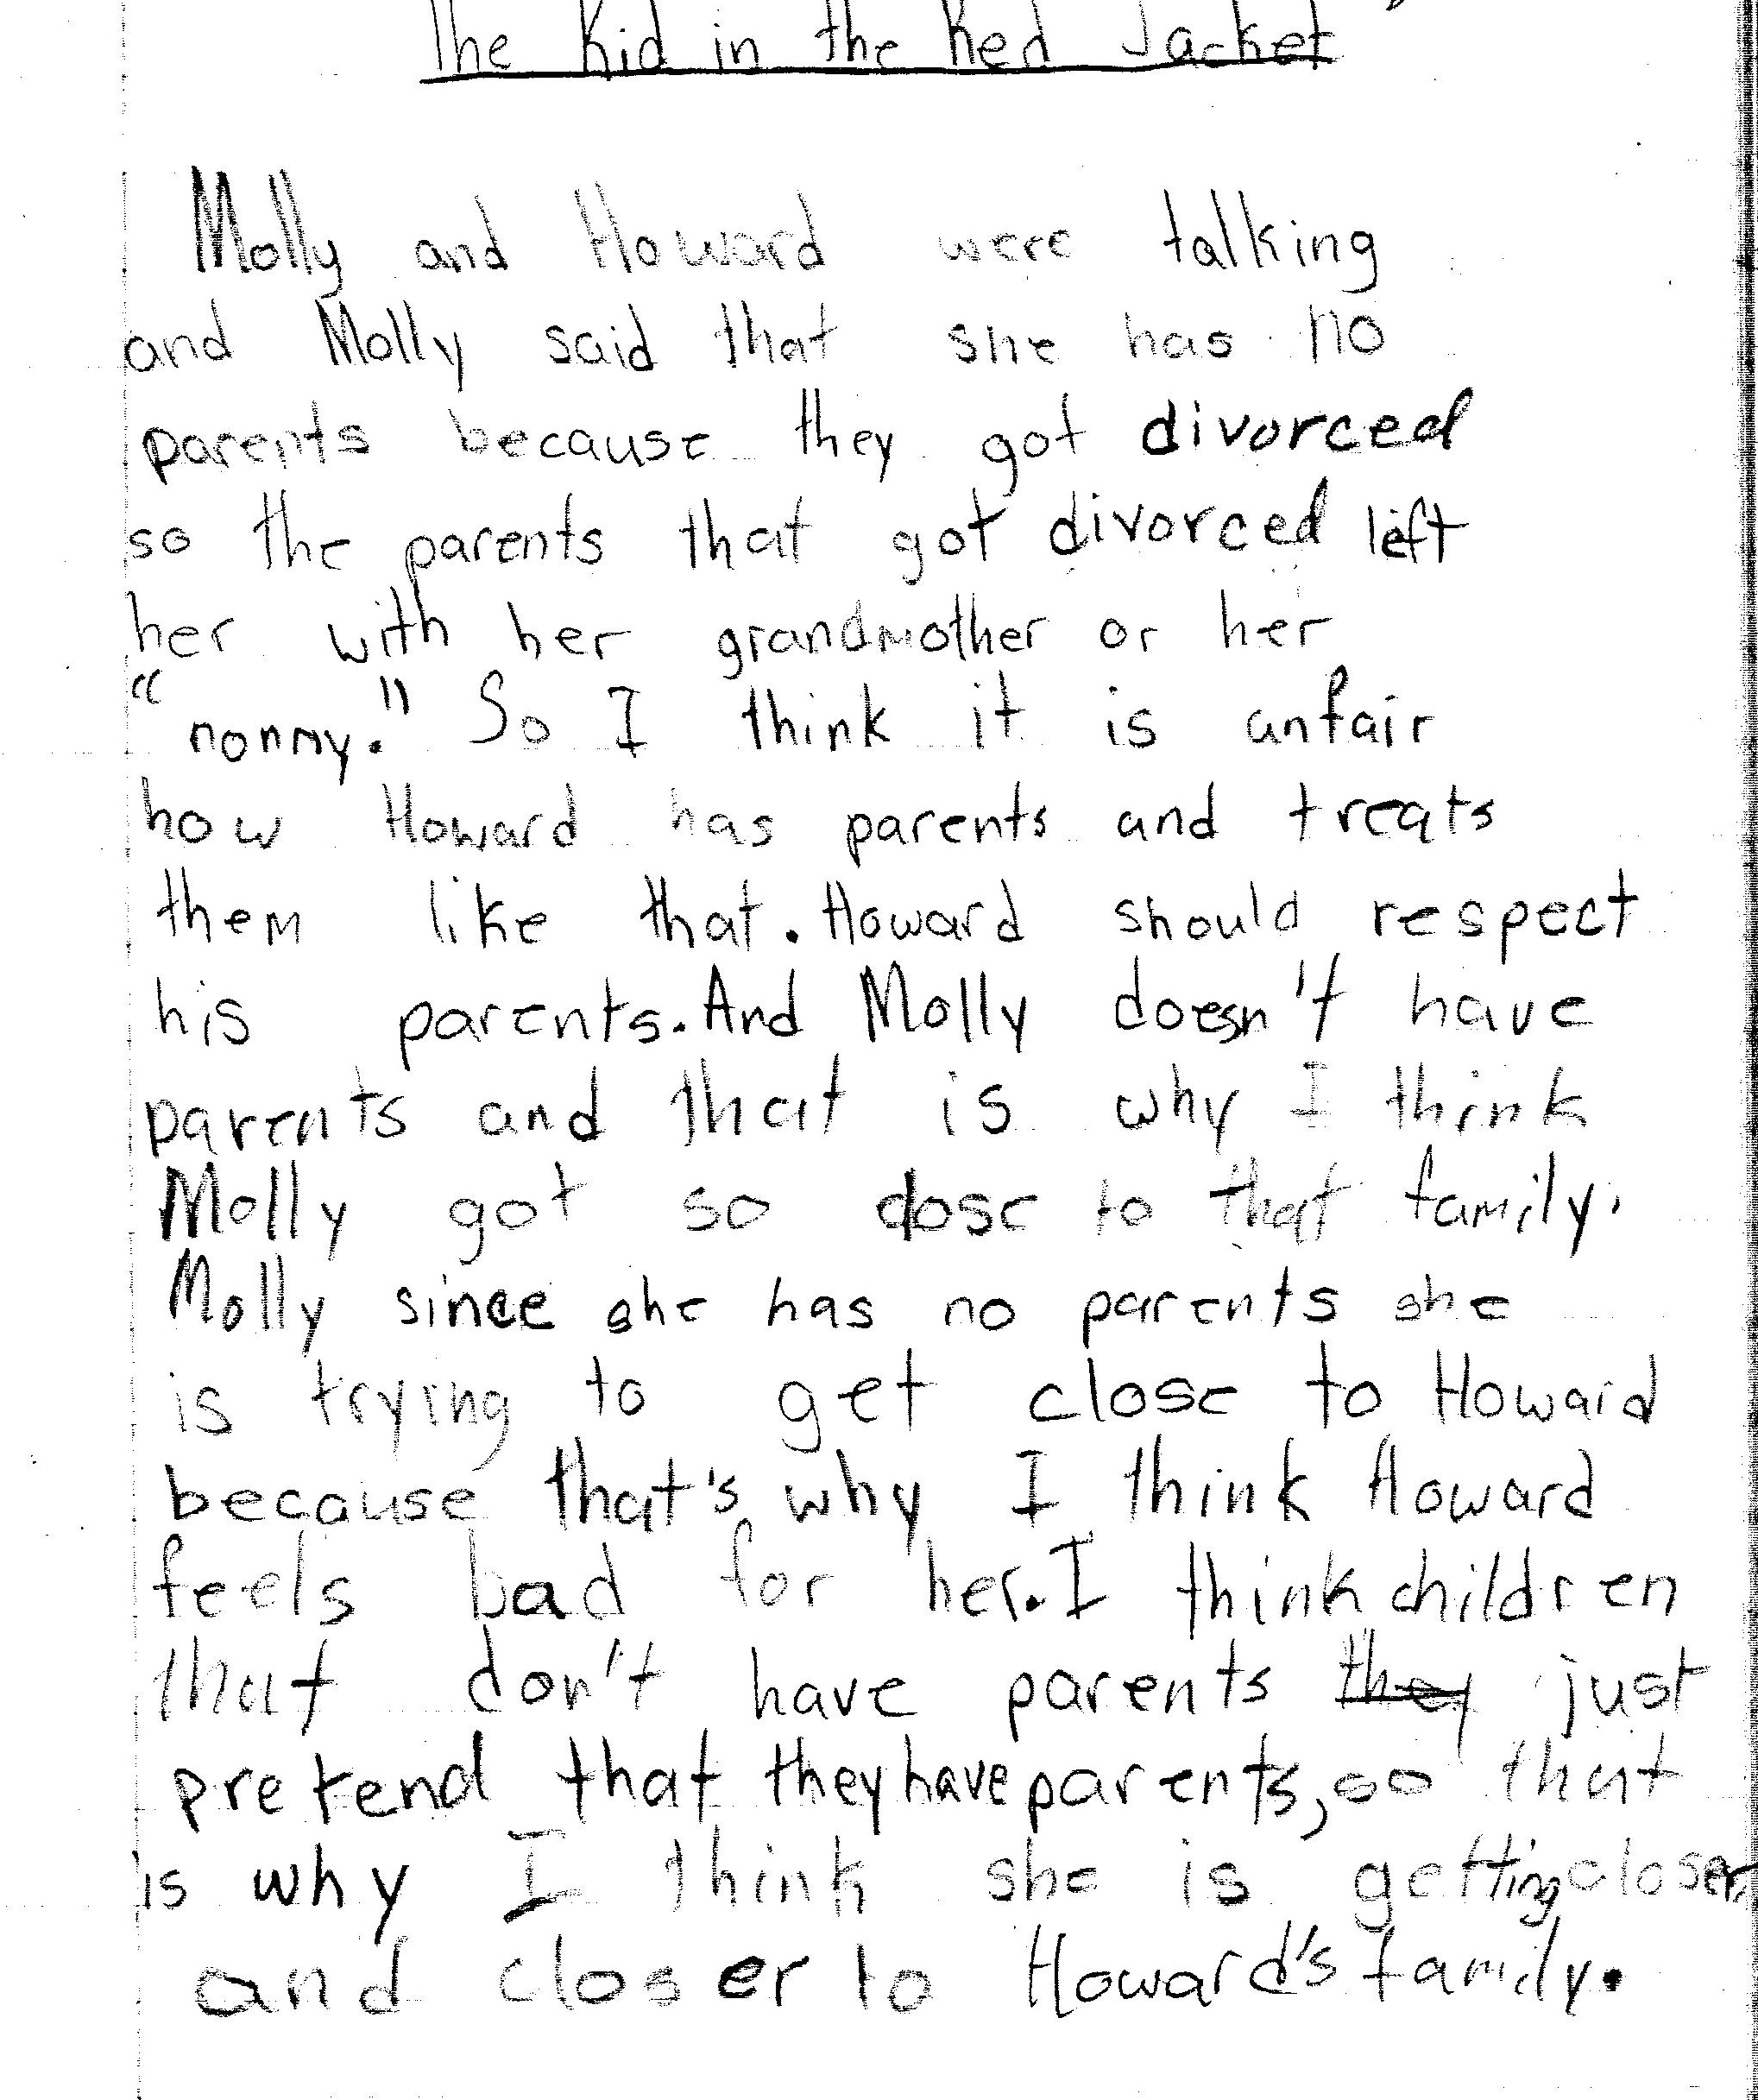 The Kid in the Red Jacket
Molly and Howard were talking
and Molly said that she has no
parents because they got divorced
so the parents that got divorced left
her with her grandmother or her
"nonny." So I think it is unfair
how Howard has parents and treats
them like that. Howard should respect
his parents. And Molly doesn't have
parents and that is why I think
Molly got so close to that family.
Molly since she has no parents she
is trying to get close to Howard
because that's why I think Howard
feels bad for her. I think children
that don't have parents they just
pretend that they have parents, so that
is why I think she is getting closer
and closer to Howard's family.